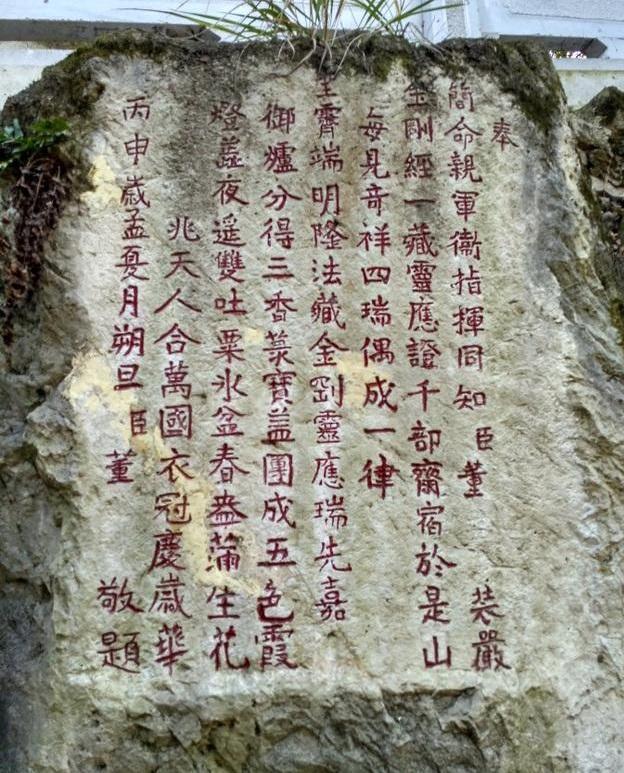 奉
簡命親軍衞指揮同知臣董 裝嚴
金剛經一藏靈應證千部齋宿於是山
每見奇祥四瑞偶成一律
霽端明隆法藏金剛靈應瑞先嘉
御爐分得三香篆寶盖團成五色霞
燈蕋夜遥雙吐粟氷盆春盎蒲生花
兆天人合萬國衣冠慶歲華
丙申歲孟夏月朔旦臣董 敬題